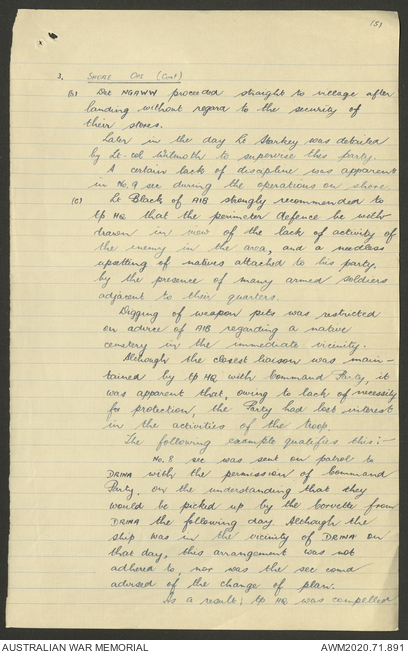 (5)
3. SHORE OPS (Cont)
(B) Det NGAWW proceeded straight to village after
landing without regard to the security of
their stores.
Later in the day Lt Starkey was detailed
by Lt-Col to supervise this party.
A certain lack of discipline was apparent
in No. 9 sec during the operations on shore.
(C) Lt Black of AIB strongly recommended to
tp HQ that the perimeter defence be with-
drawn in view of the lack of activity of
the enemy in the area, and a needless
upsetting of natives attached to his party,
by the presence of many armed soldiers
adjacent to their quarters.
Digging of weapon pits was restricted
on advice of AIB regarding a native
cemetery in the immediate vicinity.
Although the closest liaison was main-
tained by tp HQ with Command Party, it
was apparent that, owing to lack of necessity
for protection, the Party had lost interest
in the activities of the troop.
The following example qualifies this:-
No. 8 sec was sent on patrol to
DRINA with the permission of Command
Party, on the understanding that they
would be picked up by the Corvette from
DRINA the following day. Although the
ship was in the vicinity of DRINA on
that day, this arrangement was not
adhered to, nor was the sec comd
advised of the change of plan.
As a result, tp HQ was compelled
AUSTRALIAN WAR MEMORIAL
AWM2020.71.891